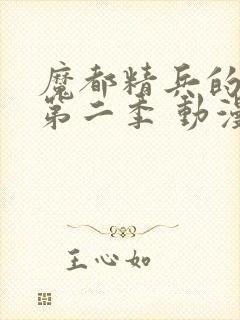 魔都精兵的
第二季 動漫
王心如